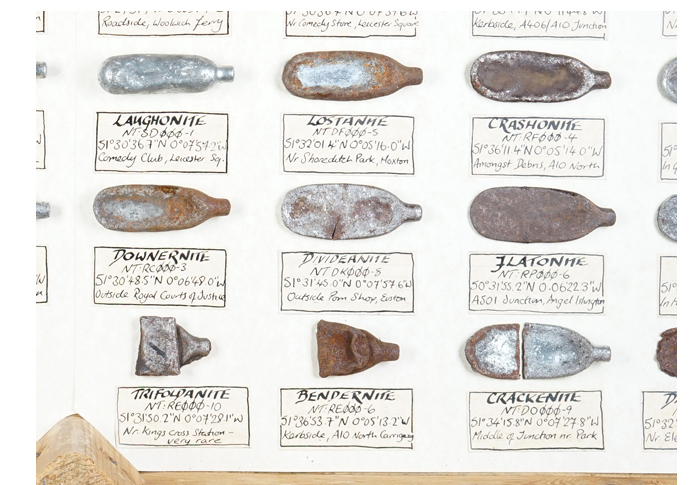 Roadside, Woolwich Ferry
Nr Comedy Store, Leicester Square
Kerbside, A406/A10 Junction
LAUGHONITE
NT:SDØØØ-1
51°30'36.7"N 0°07'57.2"W
Comedy Club, Leicester Sq.
LOSTANITE
NT:DFØØØ-5
51°32'01.4"N 0°05'16.0"W
Nr Shoreditch Park, Hoxton
CRASHONITE
NT:RFØØØ-4
51°36'11.4"N 0°05'14.0"W
Amongst Debris, A10 North
DOWNERNITE
NT:RCØØØ-3
51°30'48.5"N 0°06'48.0"W
Outside Royal Courts of Justice
DIVIDEANITE
NT:DKØØØ-8
51°31'45.0"N 0°07'57.6"W
Outside Porn Shop, Euston
FLATONITE
NT:RPØØØ-6
50°31'55.2"N 0.06'22.3"W
A501 Junction, Angel Islington
TRIFOLDANITE
NT:REØØØ-10
51°31'50.2"N 0°07'29.1"W
Nr. Kings Cross Station –
very rare
BENDERNITE
NT:REØØØ-6
51°36'53.7"N 0°05'13.2"W
Kerbside, A10 North Carrigeway
CRACKENITE
NT:DOØØØ-9
51°34'15.8"N 0°07'27.8"W
Middle of Junction nr. Park